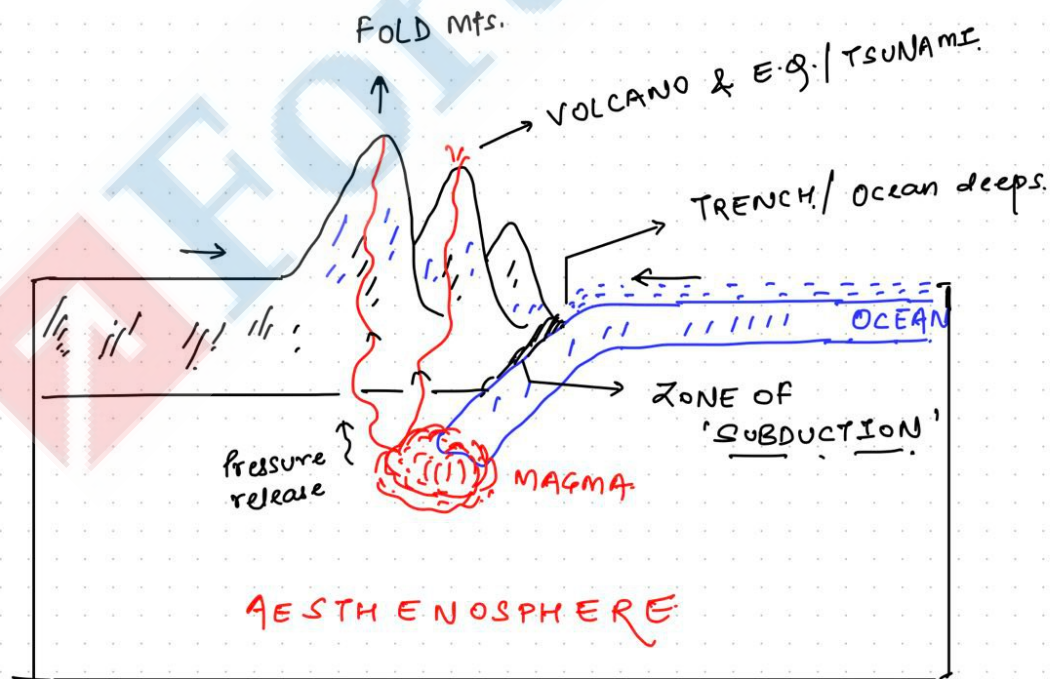 FOLD Mts.
VOLCANO & E.Q./TSUNAMI.
TRENCH/ Ocean deeps.
OCEAN
ZONE OF
'SUBDUCTION'
Pressure
release
MAGMA.
AESTHENOSPHERE